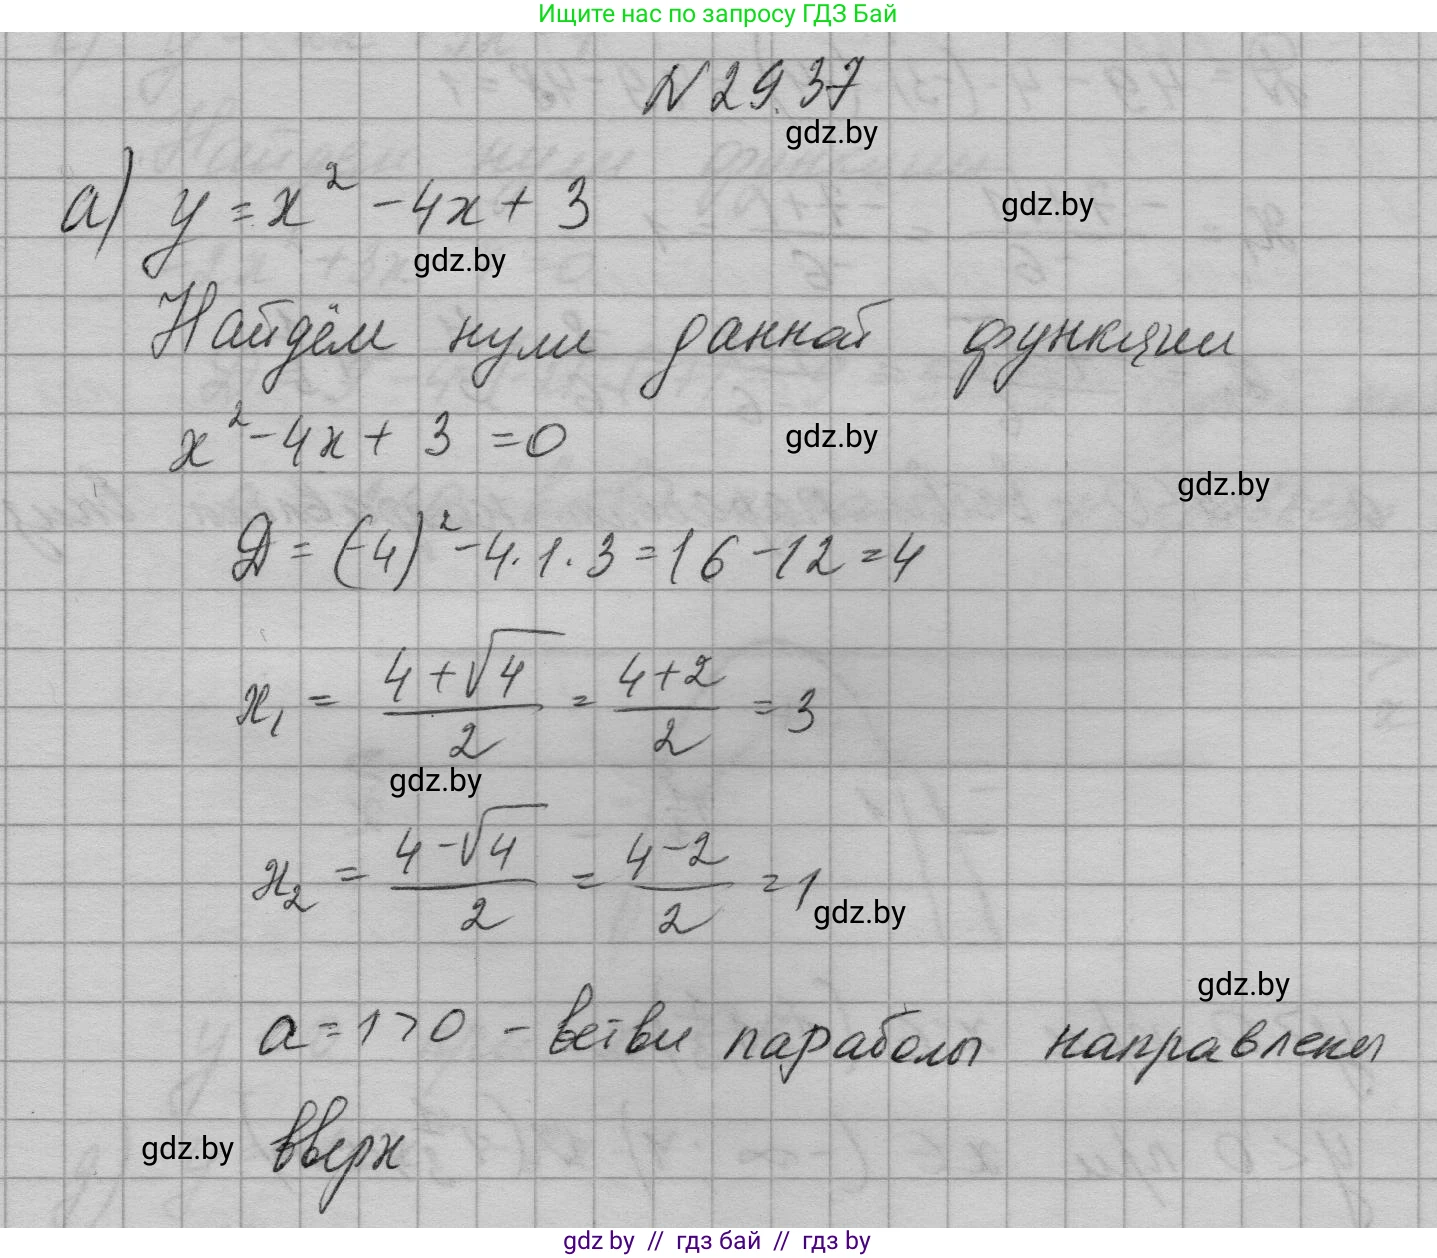 Ищите нас по запросу ГДЗ Бай
N 29.37
gdz.by
а) y = x² - 4x + 3
gdz.by
gdz.by
Найдём нули данной функции
x² - 4x + 3 = 0
gdz.by
gdz.by
D = (-4)² - 4·1·3 = 16 - 12 = 4
x₁ = (4 + √4)/2 = (4 + 2)/2 = 3
gdz.by
x₂ = (4 - √4)/2 = (4 - 2)/2 = 1
gdz.by
gdz.by
a = 1 > 0 - ветви параболы направлены
gdz.by вверх
gdz by // гдз бай // гдз by